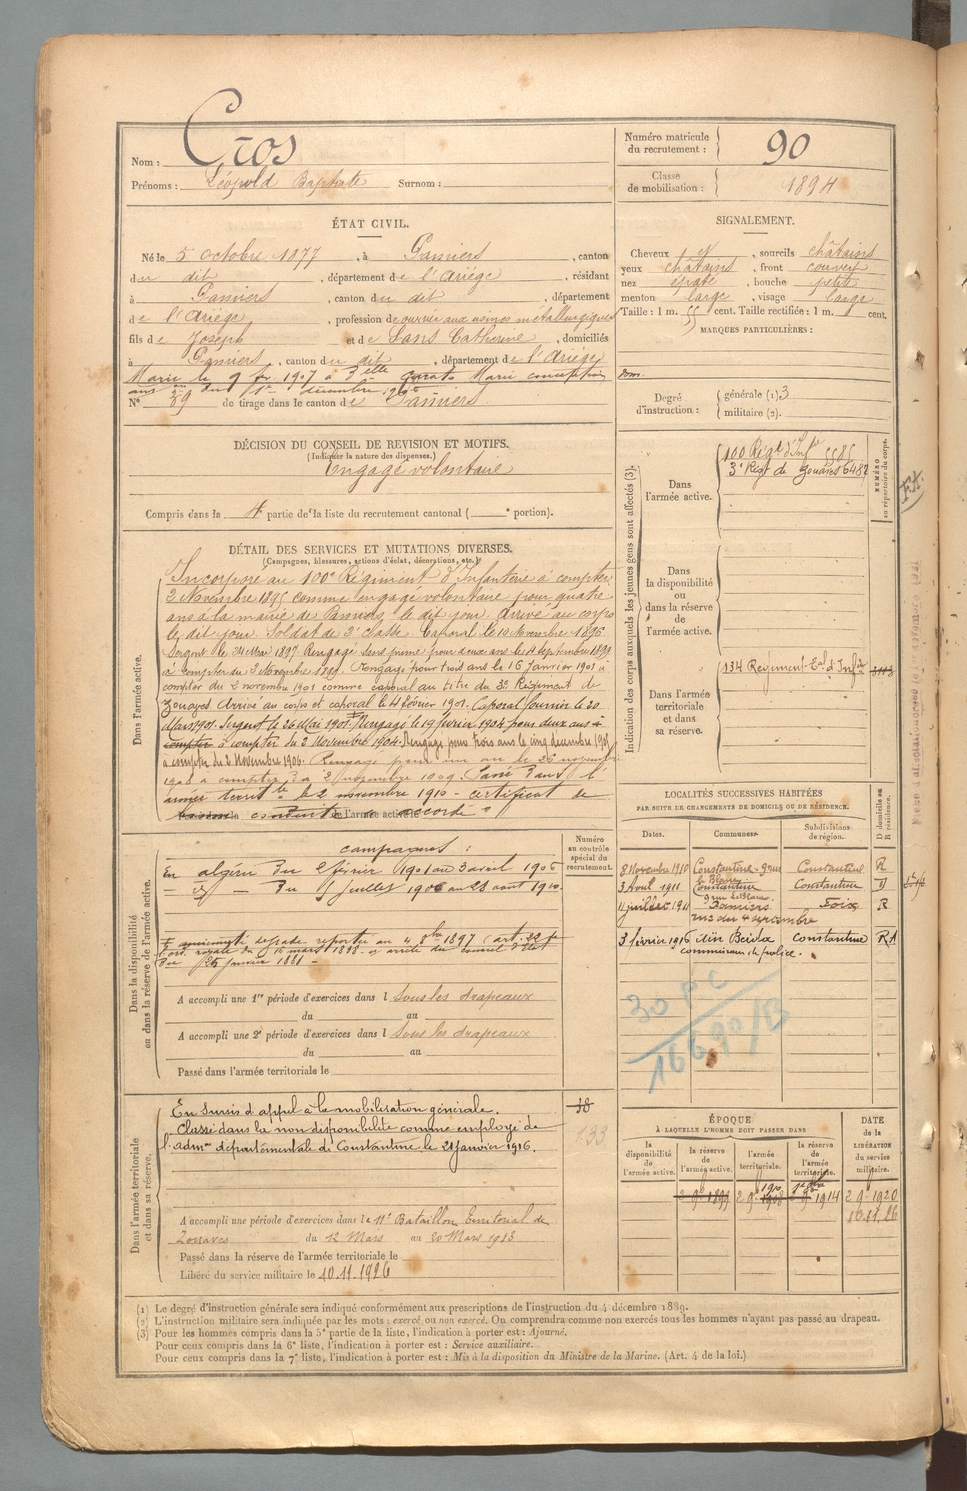 Nom : Cros
Prénoms : Léopold Baptiste Surnom :
Numéro matricule du recrutement : 90
Classe de mobilisation : 1894
ÉTAT CIVIL.
Né le 5 octobre 1877, à Pamiers, canton
du dit, département de l'Ariège, résidant
à Pamiers, canton du dit, département
de l'Ariège, profession de ouvrier aux usines métallurgiques
fils de Joseph et de Sans Catherine, domiciliés
à Pamiers, canton du dit, département de l'Ariège
Marié le 9 1907 à Melle Marie conception
décembre
N° 89 de tirage dans le canton de Pamiers
SIGNALEMENT.
Cheveux et, sourcils châtains
yeux châtains, front couvert
nez épaté, bouche petite
menton large, visage large
Taille : 1 m. 55 cent. Taille rectifiée : 1 m. cent.
MARQUES PARTICULIÈRES :
Degré d'instruction : générale (1) 3
militaire (2).
DÉCISION DU CONSEIL DE REVISION ET MOTIFS.
(Indiquer la nature des dispenses.)
Engagé volontaire
Compris dans la 4e partie de la liste du recrutement cantonal ( e portion).
DÉTAIL DES SERVICES ET MUTATIONS DIVERSES.
(Campagnes, blessures, actions d'éclat, décorations, etc.)
Dans l'armée active.
Incorporé au 100e Régiment d'Infanterie à compter
2 Novembre 1895 comme engagé volontaire pour quatre
ans à la mairie de Pamiers le dit jour. Arrivé au corps
le dit jour. Soldat de 2e classe. Caporal le 10 Novembre 1896
Sergent le 24 Mai 1897. Rengagé sans prime pour deux ans le 4 septembre 1899
à compter du 2 Novembre 1899. Rengagé pour trois ans le 16 Janvier 1901 à
compter du 2 novembre 1901 comme caporal au titre du 3e Régiment de
Zouaves Arrivé au corps et caporal le 4 février 1901. Caporal fourrier le 20
Mars 1901. Sergent le 26 Mai 1901. Rengagé le 19 février 1904 pour deux ans à
compter à compter du 2 Novembre 1904. Rengagé pour trois ans le cinq décembre 1905
à compter du 2 Novembre 1906. Rengagé pour un an le 26 novembre
1908 à compter du 2 novembre 1909. Passé dans l'
armée territle le 2 novembre 1910 - certificat de
bonne conduite de l'armée active accordé
Indication des corps auxquels les jeunes gens sont affectés (3).
NUMÉRO au répertoire du corps.
Dans l'armée active.
100 Régt d'Infie 5585
3e Régt de Zouaves 6482
Dans la disponibilité ou dans la réserve de l'armée active.
Dans l'armée territoriale et dans sa réserve.
134 Régiment Eal d'Infie
LOCALITÉS SUCCESSIVES HABITÉES
PAR SUITE DE CHANGEMENTS DE DOMICILE OU DE RÉSIDENCE.
Dates. Communes. Subdivisions de région. D domicile ou R résidence.
8 Novembre 1910 Constantine 9 rue Constantine R
Le Blanc
3 Avril 1911 Constantine Constantine D
9 rue Le Blanc
11 juillet 1911 Pamiers Foix R
rue du 4 septembre
3 février 1916 Aïn Beïda Constantine R
commissaire de police.
30 PC
1669/B
Dans la disponibilité ou dans la réserve de l'armée active.
Numéro au contrôle spécial du recrutement.
campagnes :
En algérie du 2 février 1901 au 3 avril 1906
— id — du 5 juillet 1906 au 28 août 1910.
ancienneté de grade reportée au 4 8bre 1897 (art.
du 16 mars 1838
du 25 janvier 1881 -
A accompli une 1re période d'exercices dans l Sous les drapeaux
du au
A accompli une 2e période d'exercices dans l Sous les drapeaux
du au
Passé dans l'armée territoriale le
Dans l'armée territoriale et dans sa réserve.
En sursis d'appel à la mobilisation générale.
Classé dans la non disponibilité comme employé de
l'admon départementale de Constantine le 21 janvier 1916.
38
133
A accompli une période d'exercices dans le 11e Bataillon Territorial de
Zouaves du 12 Mars au 20 Mars 1913
Passé dans la réserve de l'armée territoriale le
Libéré du service militaire le 10.11.1926
ÉPOQUE
À LAQUELLE L'HOMME DOIT PASSER DANS
la disponibilité de l'armée active.
la réserve de l'armée active.
l'armée territoriale.
la réserve de l'armée territoriale.
DATE de la LIBÉRATION du service militaire.
2 9e 1899
2 9e 1908
1910
1914
2 9e 1920
10.11.26
(1) Le degré d'instruction générale sera indiqué conformément aux prescriptions de l'instruction du 4 décembre 1889.
(2) L'instruction militaire sera indiquée par les mots : exercé ou non exercé. On comprendra comme non exercés tous les hommes n'ayant pas passé au drapeau.
(3) Pour les hommes compris dans la 5e partie de la liste, l'indication à porter est : Ajourné.
Pour ceux compris dans la 6e liste, l'indication à porter est : Service auxiliaire.
Pour ceux compris dans la 7e liste, l'indication à porter est : Mis à la disposition du Ministre de la Marine. (Art. 4 de la loi.)